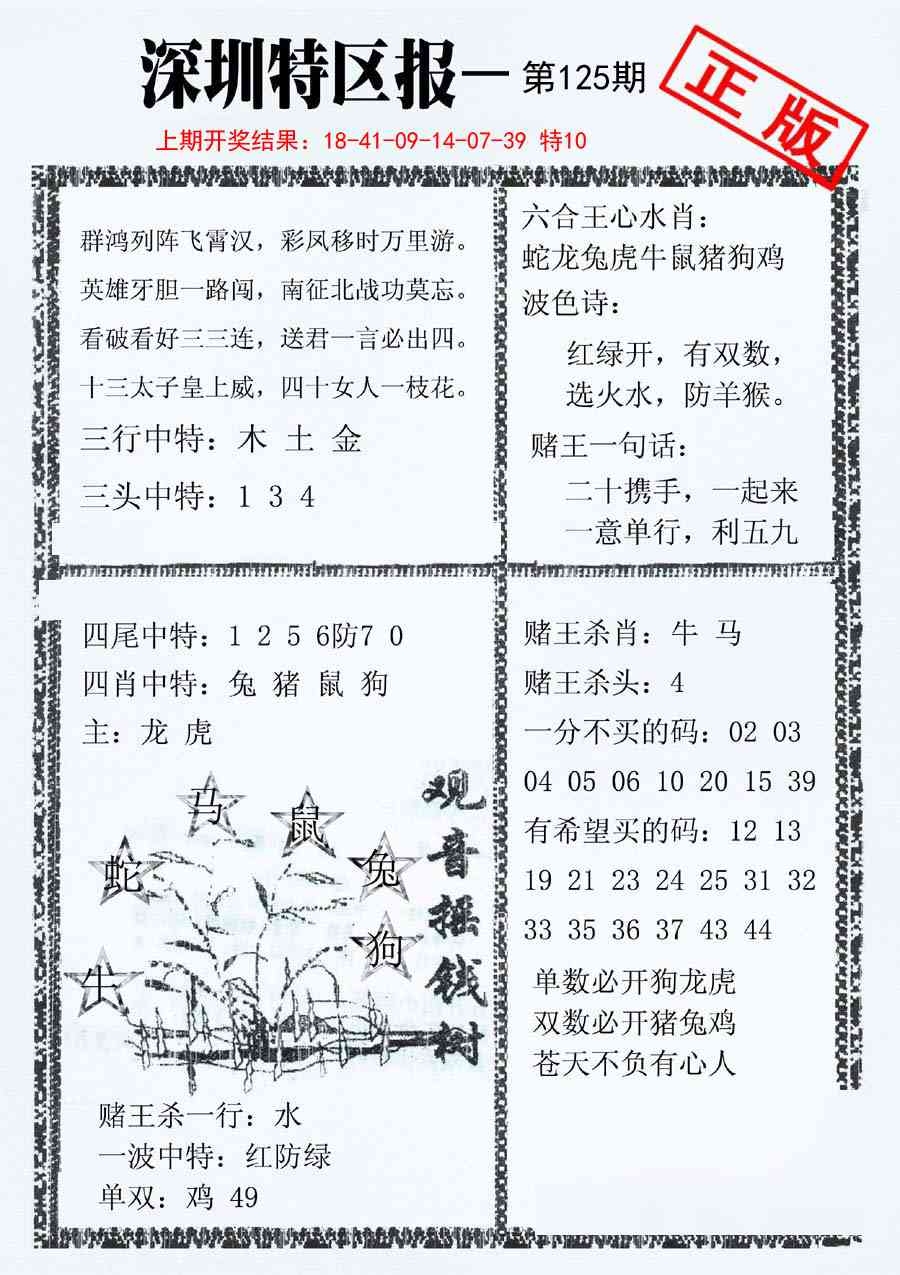 深圳特区报—第125期
正版
上期开奖结果：18-41-09-14-07-39 特10
群鸿列阵飞霄汉，彩凤移时万里游。
英雄牙胆一路闯，南征北战功莫忘。
看破看好三三连，送君一言必出四。
十三太子皇上威，四十女人一枝花。
三行中特：木 土 金
三头中特：1 3 4
六合王心水肖：
蛇龙兔虎牛鼠猪狗鸡
波色诗：
红绿开，有双数，
选火水，防羊猴。
赌王一句话：
二十携手，一起来
一意单行，利五九
四尾中特：1 2 5 6防7 0
四肖中特：兔 猪 鼠 狗
主：龙 虎
马
鼠
蛇
兔
狗
牛
观音摇钱树
赌王杀一行：水
一波中特：红防绿
单双：鸡 49
赌王杀肖：牛 马
赌王杀头：4
一分不买的码：02 03
04 05 06 10 20 15 39
有希望买的码：12 13
19 21 23 24 25 31 32
33 35 36 37 43 44
单数必开狗龙虎
双数必开猪兔鸡
苍天不负有心人